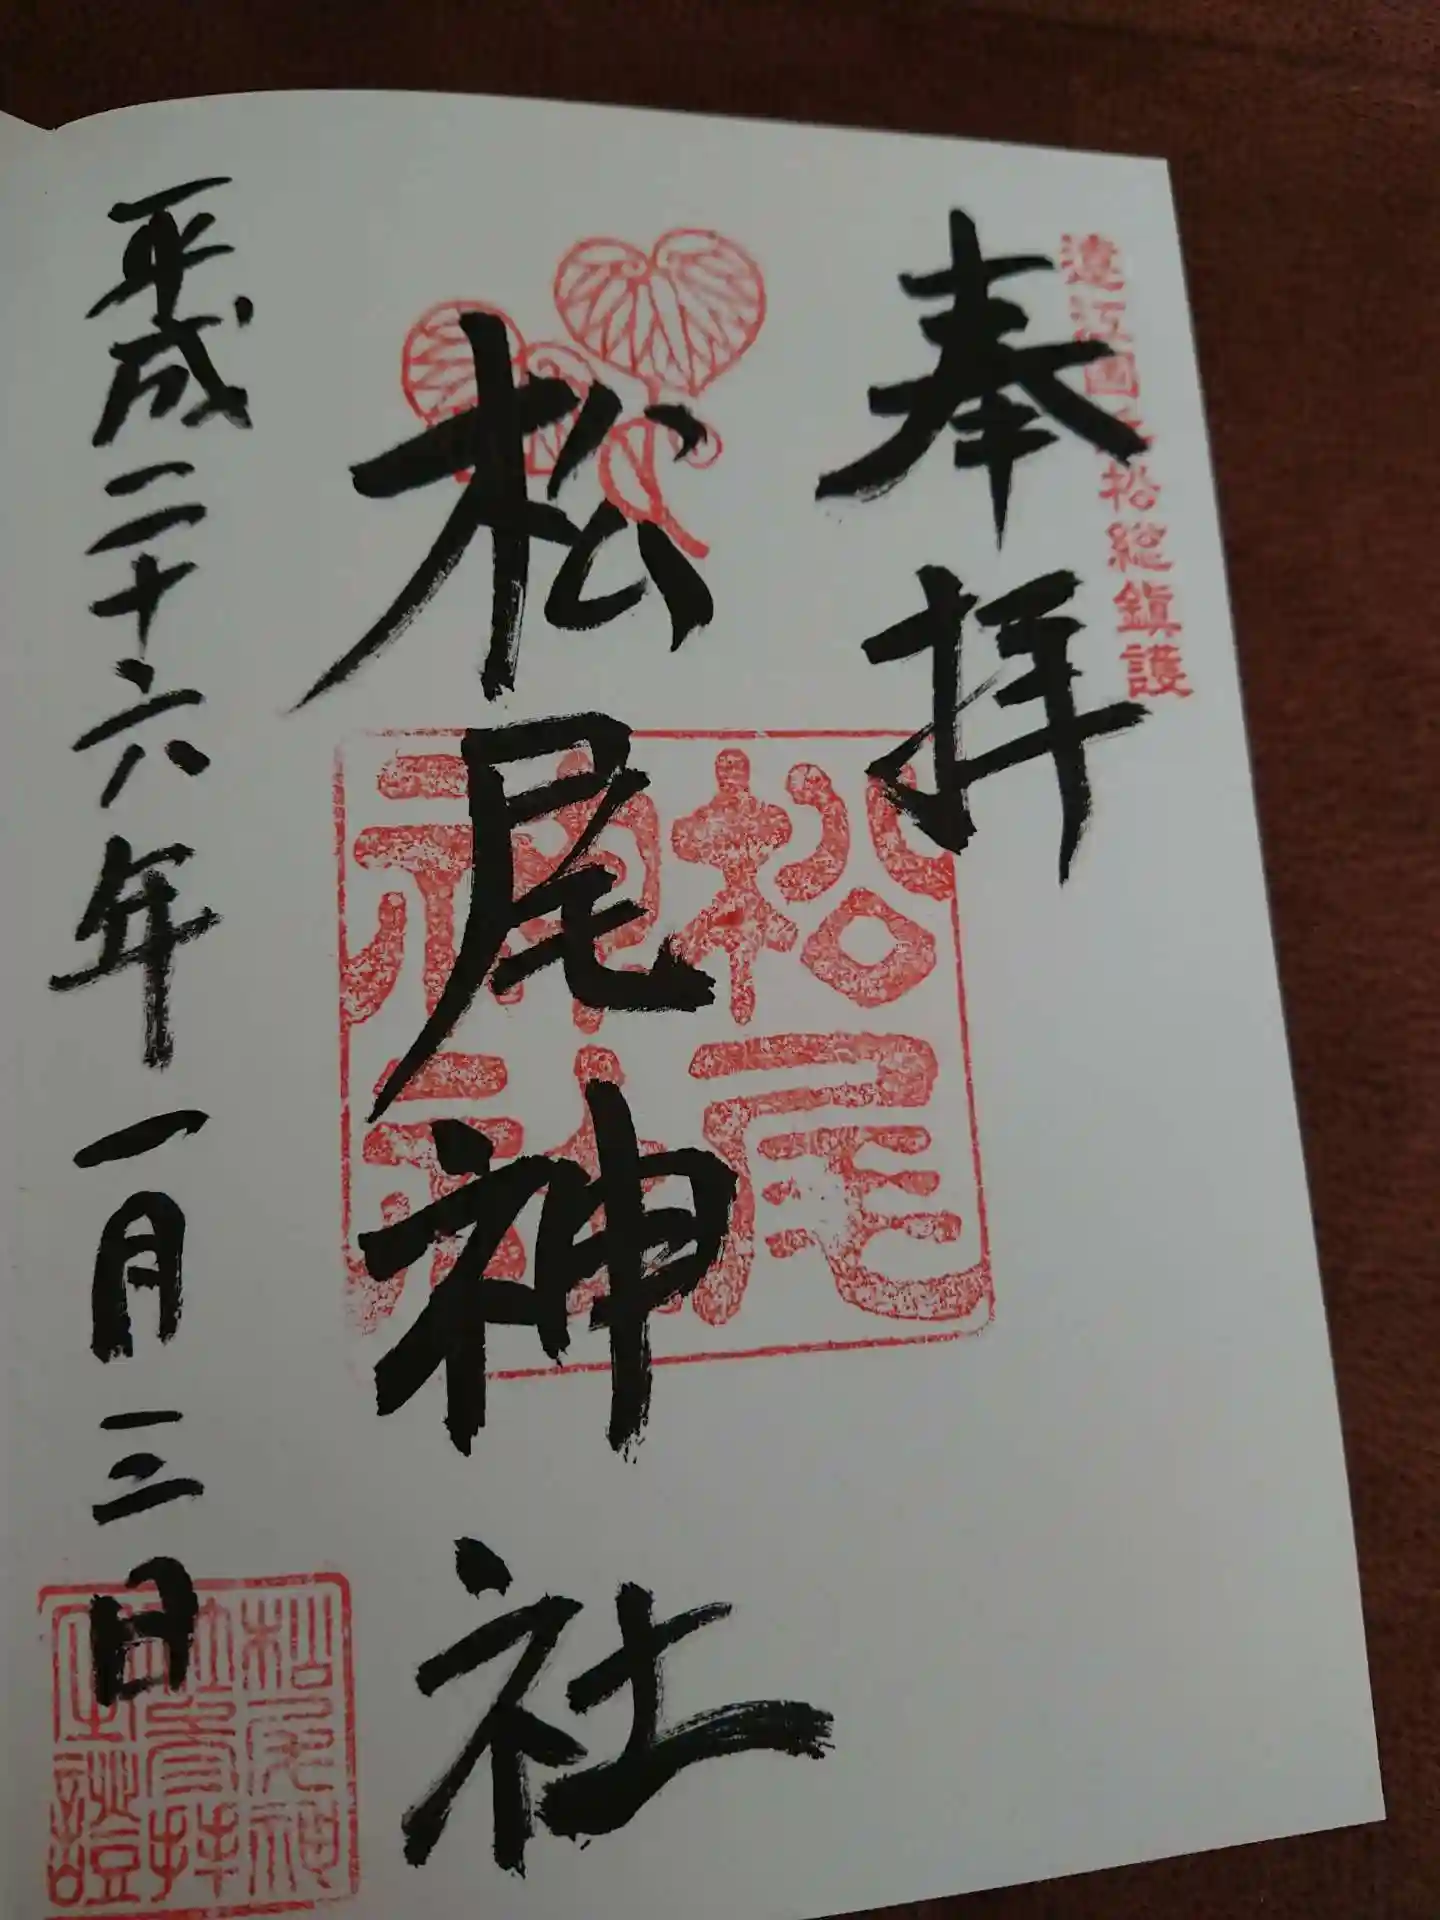 遠江國二松総鎮護
奉拝
松尾神社
松尾
神社
平成二十六年一月三日
松尾神
社参拝
記證